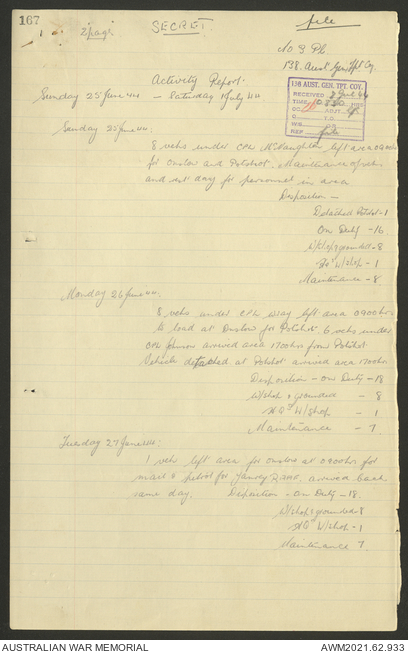 167
1
2 page
SECRET
file
No 3 Pl
138. Aust Gen Tpt Coy.
138 AUST. GEN. TPT. COY.
RECEIVED
TIME
OC
Q
WS
REP file
Activity Report.
Sunday 25 June 44 — Saturday 1 July 44
Sunday 25 June 44:
8 vehs under CPL McNaughton left area 0900hrs
for Onslow and Potshot. Maintenance of vehs
and rest day for personnel in area
Disposition —
Detached Potshot - 1
On Duty - 16
W/shop & grounded - 8
HQ W/shop - 1
Maintenance - 8
Monday 26 June 44:
8 vehs under CPL Wray left area 0900hrs
to load at Onslow for Potshot 6 vehs under
CPL Johnson arrived area 1700hrs from Potshot
Vehicle detached at Potshot arrived area 1700hrs
Disposition - On Duty - 18
W/shop & grounded - 8
HQ W/shop - 1
Maintenance - 7
Tuesday 27 June 44:
1 veh left area for Onslow at 0900hrs for
meat & petrol for Yanrey Rank. arrived back
same day. Disposition - On Duty - 18.
W/shop & grounded - 8
HQ W/shop - 1
Maintenance 7.
AUSTRALIAN WAR MEMORIAL
AWM2021.62.933